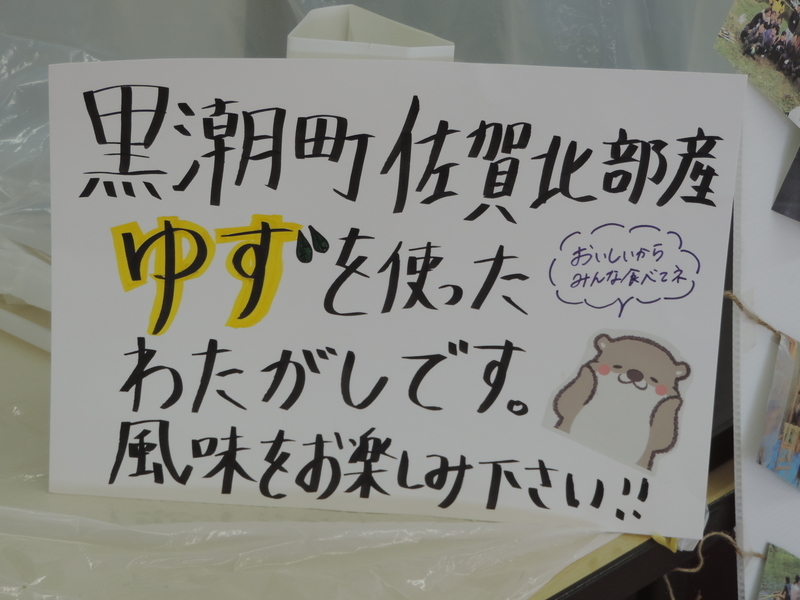 黒潮町佐賀北部産
ゆずを使った
おいしいから
みんな食べてネ
わたがしです。
風味をお楽しみ下さい!!